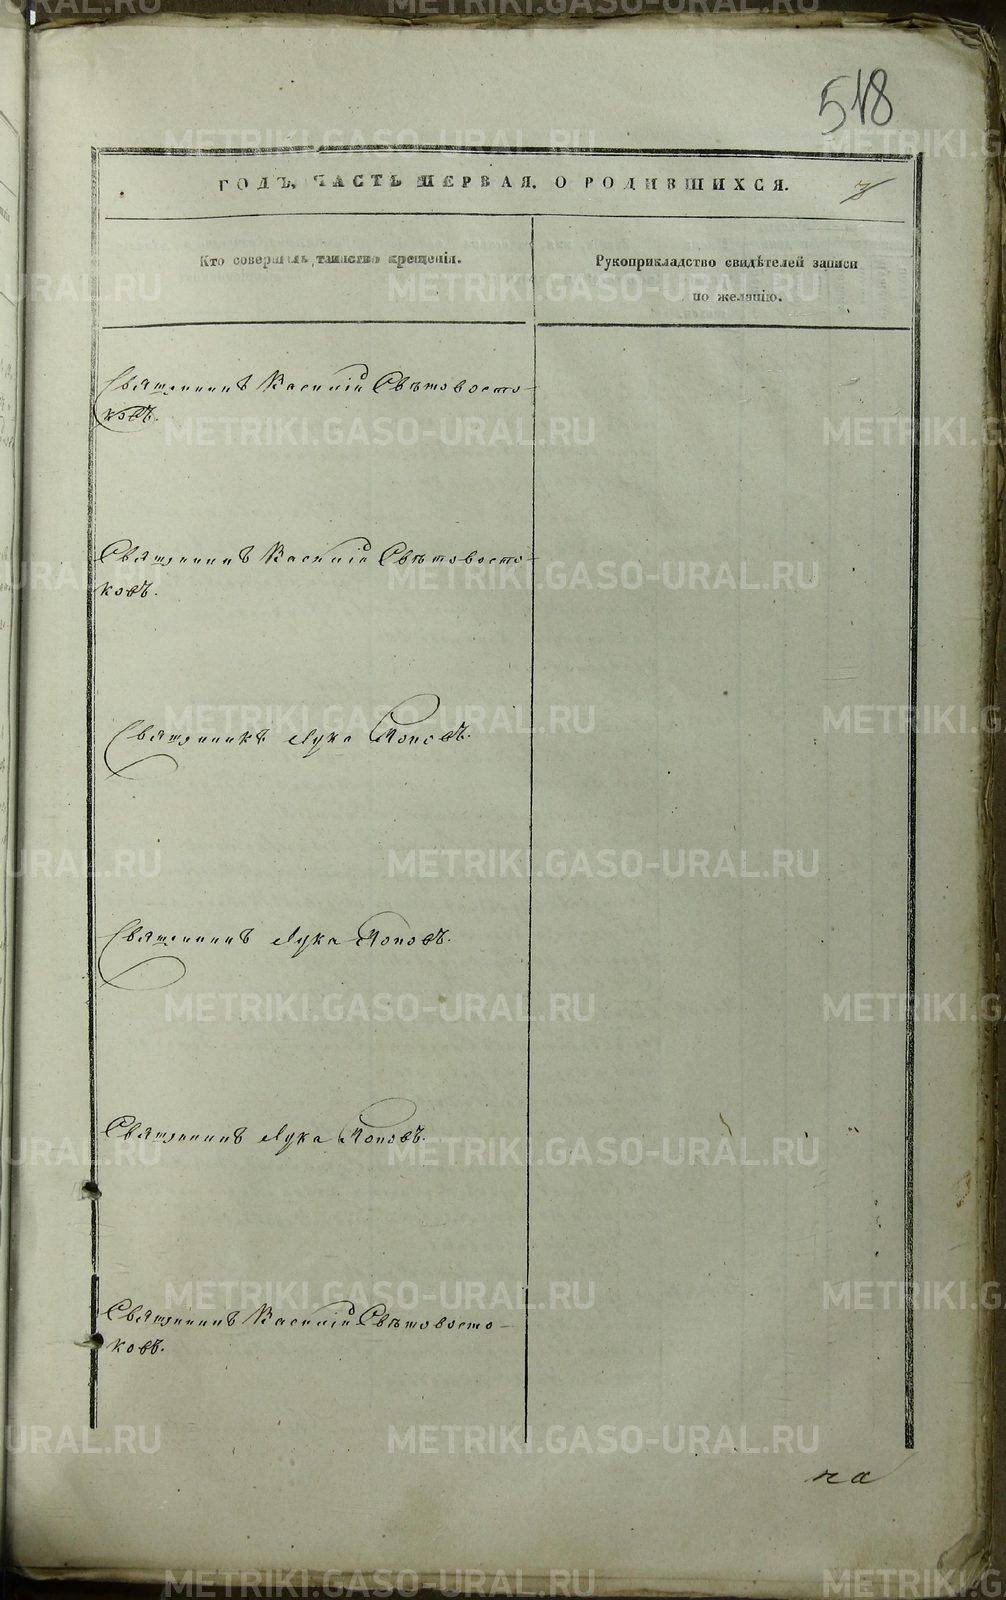 518
ГОДЪ, ЧАСТЬ ПЕРВАЯ, О РОДИВШИХСЯ.
Кто совершалъ таинство крещенія.
Рукоприкладство свидѣтелей записи
по желанію.
Священникъ Василій Свѣтовосто-
ковъ.
Священникъ Василій Свѣтовосто-
ковъ.
Священникъ Лука Поповъ.
Священникъ Лука Поповъ.
Священникъ Лука Поповъ.
Священникъ Василій Свѣтовосто-
ковъ.
на
METRIKI.GASO-URAL.RU